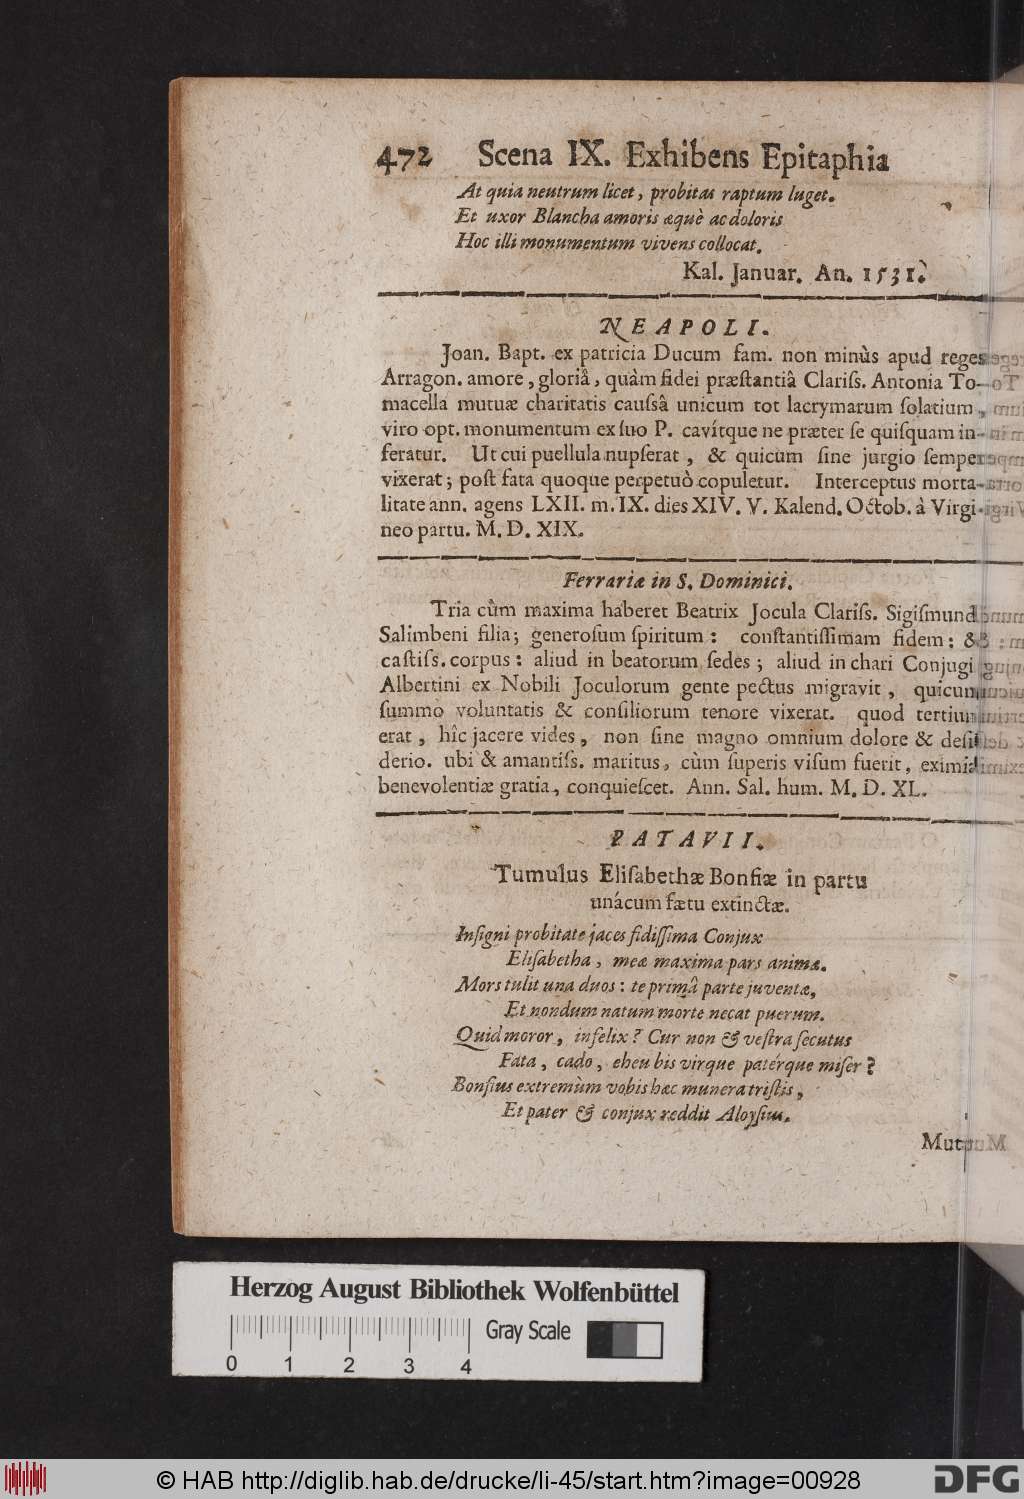 472 Scena IX. Exhibens Epitaphia
At quia neutrum licet, probitas raptum luget.
Et uxor Blancha amoris æquè ac doloris
Hoc illi monumentum vivens collocat.
Kal. Januar. An. 1531.
NEAPOLI.
Joan. Bapt. ex patricia Ducum fam. non minùs apud reges
Arragon. amore, gloriâ, quàm fidei præstantiâ Clariſs. Antonia To-
macella mutuæ charitatis cauſsâ unicum tot lacrymarum ſolatium,
viro opt. monumentum ex ſuo P. cavítque ne præter ſe quiſquam in-
feratur. Ut cui puellula nupſerat, & quicum ſine jurgio ſemper
vixerat; poſt fata quoque perpetuò copuletur. Interceptus morta-
litate ann. agens LXII. m. IX. dies XIV. V. Kalend. Octob. à Virgi-
neo partu. M. D. XIX.
Ferrariæ in S. Dominici.
Tria cùm maxima haberet Beatrix Jocula Clariſs. Sigiſmundi
Salimbeni filia; generoſum ſpiritum: conſtantiſſimam fidem: &
caſtiſs. corpus: aliud in beatorum ſedes; aliud in chari Conjugis
Albertini ex Nobili Joculorum gente pectus migravit, quicum
ſummo voluntatis & conſiliorum tenore vixerat. quod tertium
erat, hîc jacere vides, non ſine magno omnium dolore & deſi-
derio. ubi & amantiſs. maritus, cùm ſuperis viſum fuerit, eximia
benevolentiæ gratia, conquieſcet. Ann. Sal. hum. M. D. XL.
PATAVII.
Tumulus Eliſabethæ Bonfiæ in partu
unácum fætu extinctæ.
Inſigni probitate jaces fidiſſima Conjux
Eliſabetha, meæ maxima pars animæ.
Mors tulit una duos: te primâ parte juventæ,
Et nondum natum morte necat puerum.
Quid moror, infelix? Cur non & veſtra ſecutus
Fata, cado, eheu bis virque patérque miſer?
Bonfius extremùm vobis hæc munera triſtis,
Et pater & conjux reddit Aloyſius.
Mutuu
Herzog August Bibliothek Wolfenbüttel
Gray Scale
0 1 2 3 4
© HAB http://diglib.hab.de/drucke/li-45/start.htm?image=00928
DFG